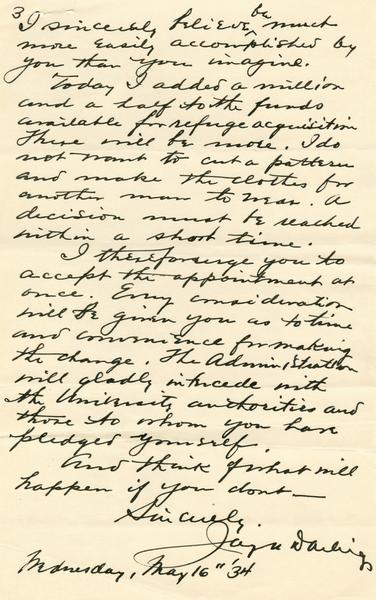 3
be
I sincerely believe, much
more easily accomplished by
you than you imagine.
Today I added a million
and a half to the funds
available for refuge acquisition
There will be more. I do
not want to cut a pattern
and make the clothes for
another man to wear. A
decision must be reached
within a short time.
I therefor urge you to
accept the appointment at
once. Every consideration
will be given you as to time
and convenience for making
the change. The Administration
will gladly intercede with
the University authorities and
those to whom you have
pledged yourself.
And think of what will
happen if you dont—
Sincerely,
Jay N Darling
Wednesday, May 16" '34